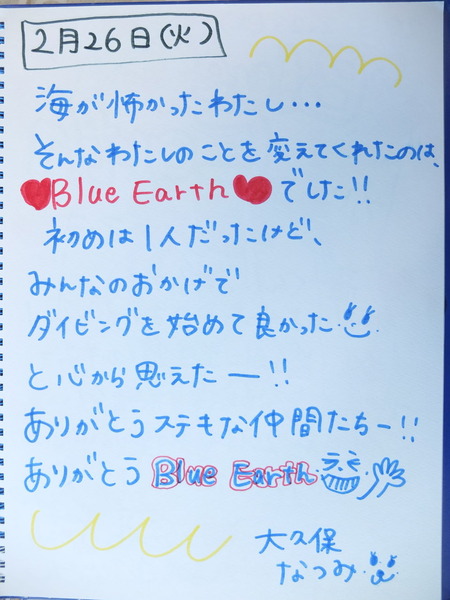 2月26日(火)
海が怖かったわたし…
そんなわたしのことを変えてくれたのは、
♥Blue Earth♥でした!!
初めは1人だったけど、
みんなのおかげで
ダイビングを始めて良かった
と心から思えたー!!
ありがとうステキな仲間たちー!!
ありがとう Blue Earth
大久保
なつみ